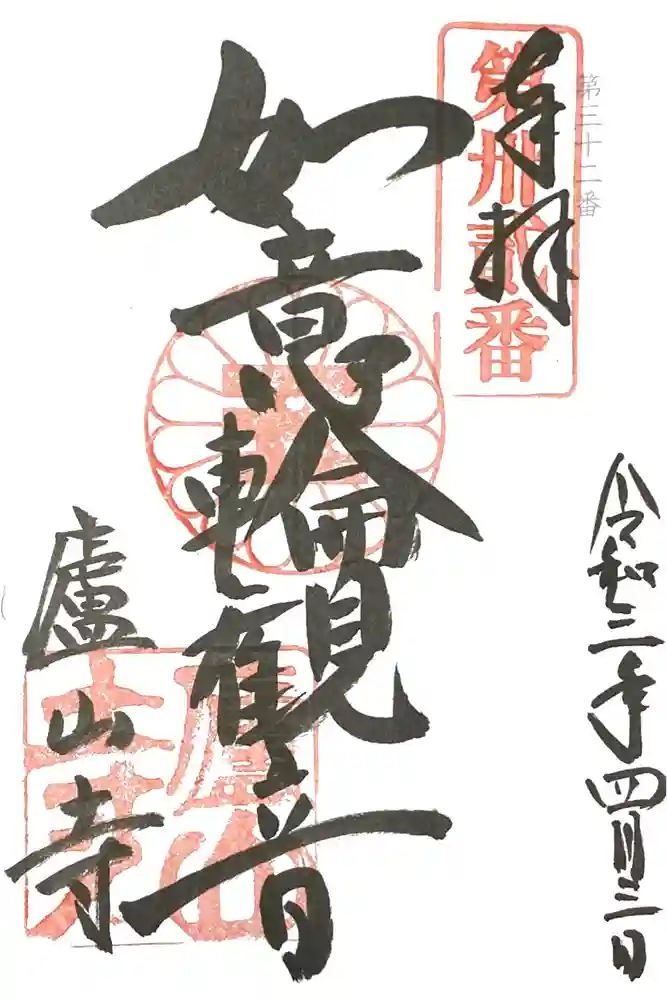 第三十二番
奉拝
第卅貳番
令和三年四月三日
如意輪観音
廬山寺
廬山寺